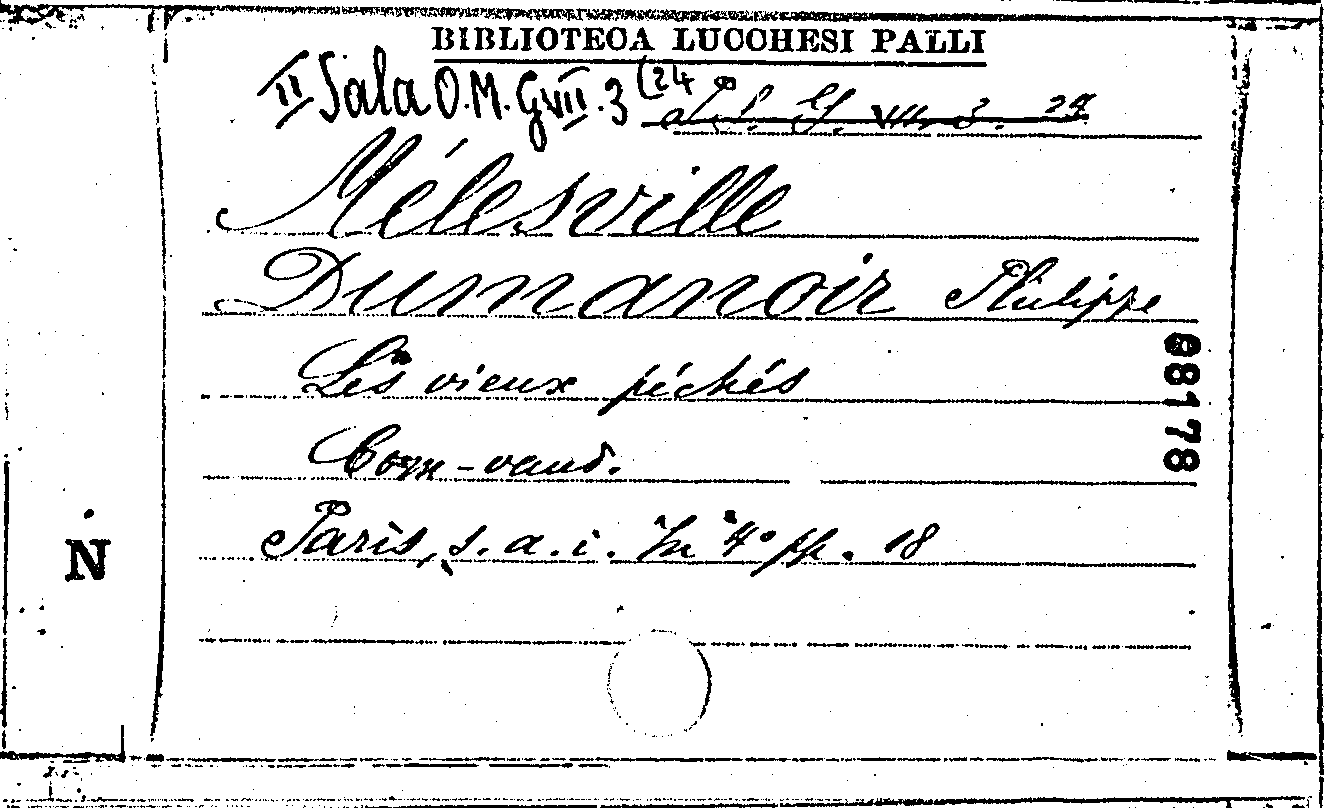 BIBLIOTECA LUCCHESI PALLI
II Sala O.M. G VII. 3 (24
VII 3. 24
Mélesville
Dumanoir Philippe
Les vieux péchés
Com-vaud.
Paris, s. a. i. In 4° pp. 18
88178
N